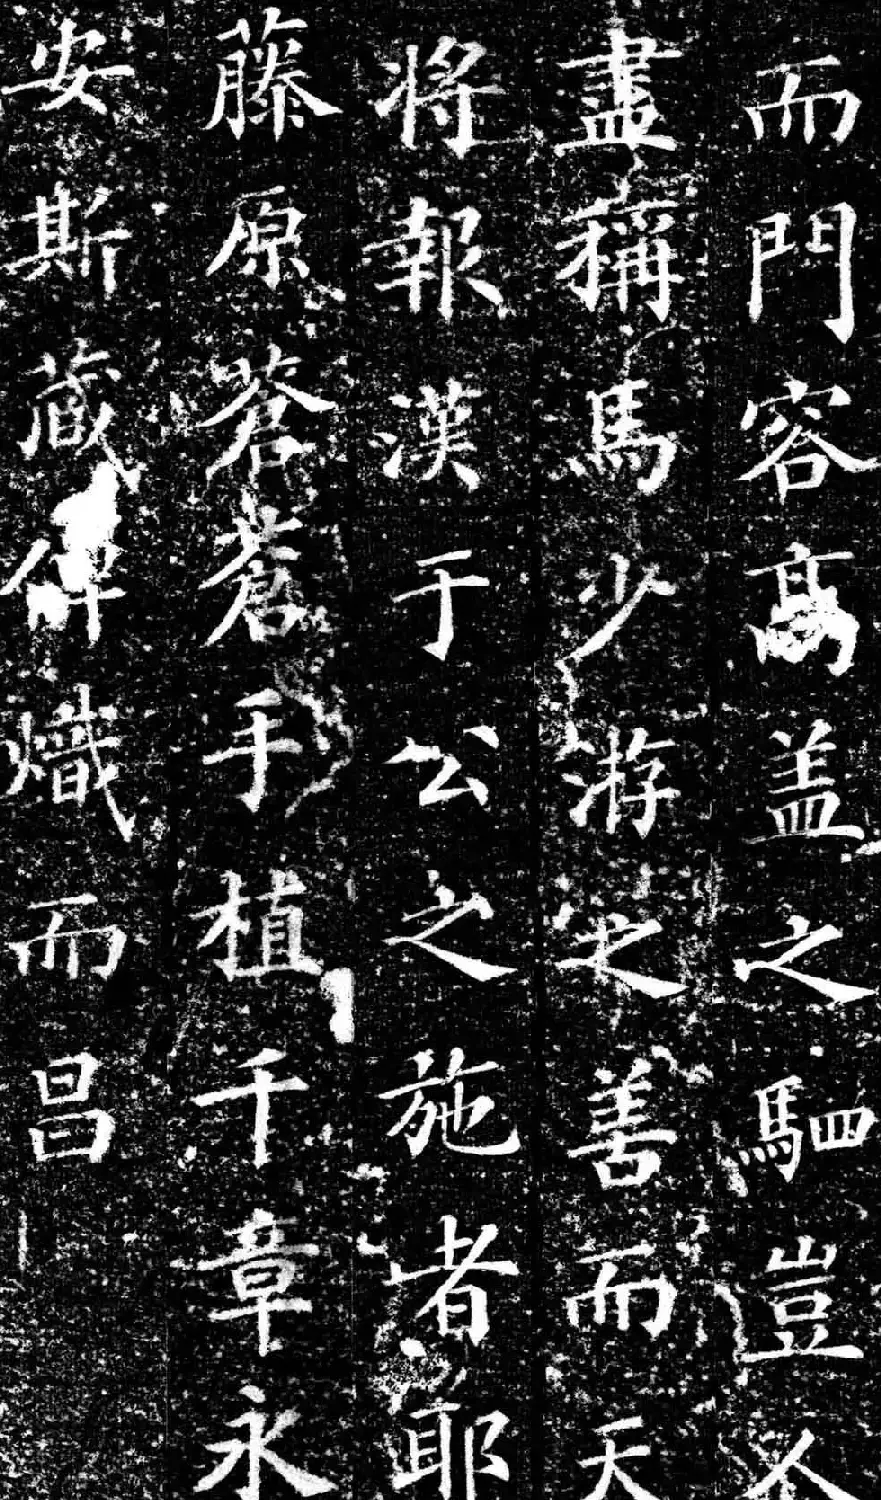 而門容高盖之駟豈人
盡稱馬少游之善而天
將報漢于公之施者耶
藤原蒼蒼手植千章永
安斯藏俾熾而昌